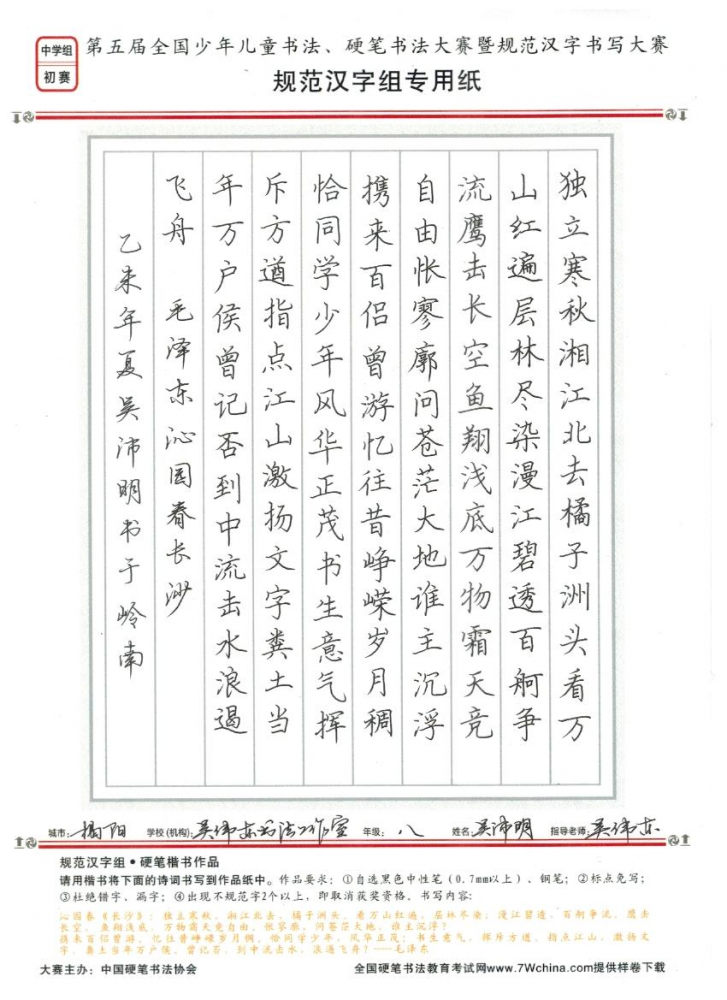 中学组
初赛
第五届全国少年儿童书法、硬笔书法大赛暨规范汉字书写大赛
规范汉字组专用纸
独立寒秋湘江北去橘子洲头看万
山红遍层林尽染漫江碧透百舸争
流鹰击长空鱼翔浅底万物霜天竞
自由怅寥廓问苍茫大地谁主沉浮
携来百侣曾游忆往昔峥嵘岁月稠
恰同学少年风华正茂书生意气挥
斥方遒指点江山激扬文字粪土当
年万户侯曾记否到中流击水浪遏
飞舟 毛泽东沁园春长沙
乙未年夏吴沛明书于岭南
城市：揭阳 学校(机构)：吴伟东书法工作室 年级：八 姓名：吴沛明 指导老师：吴伟东
规范汉字组●硬笔楷书作品
请用楷书将下面的诗词书写到作品纸中。作品要求：①自选黑色中性笔（0.7mm以上）、钢笔；②标点免写；
③杜绝错字、漏字；④出现不规范字2个以上，即取消获奖资格。书写内容：
沁园春《长沙》：独立寒秋，湘江北去，橘子洲头，看万山红遍，层林尽染；漫江碧透，百舸争流，鹰击
长空，鱼翔浅底，万物霜天竞自由，怅寥廓，问苍茫大地，谁主沉浮？
携来百侣曾游，忆往昔峥嵘岁月稠，恰同学少年，风华正茂；书生意气，挥斥方遒，指点江山，激扬文
字，粪土当年万户侯，曾记否，到中流击水，浪遏飞舟？——毛泽东
大赛主办：中国硬笔书法协会 全国硬笔书法教育考试网www.7Wchina.com提供样卷下载